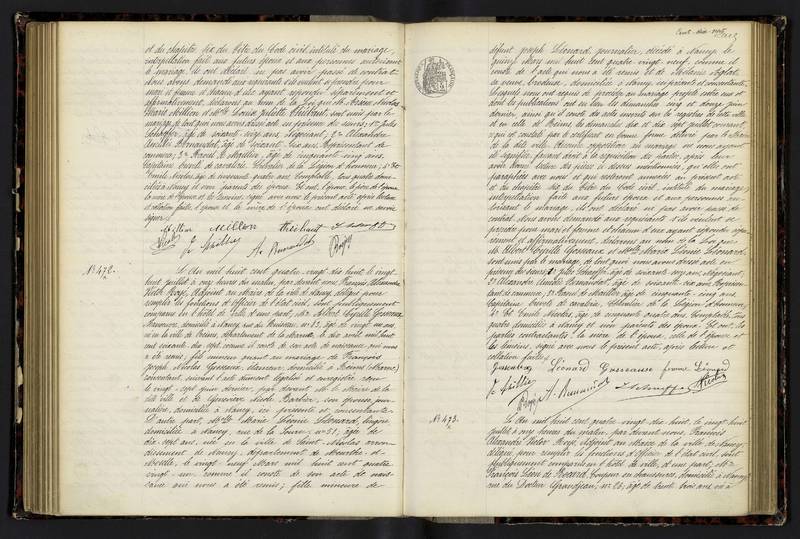 et du chapitre six du titre du Code civil, intitulé du mariage,
interpellation faite aux futurs époux et aux personnes autorisant
le mariage, ils ont déclaré ne pas avoir passé de contrat.
Nous avons demandé aux représentés s'ils veulent se prendre pour
mari et femme et chacun d'eux ayant répondu séparément et
affirmativement, déclarons au nom de la Loi que Mr
Millon et Mlle Louise Juliette Thiébaut, sont unis par le
mariage, de tout quoi nous avons dressé acte en présence de
Schaeffer, âgé de soixante seize ans, Négociant; 2° Alexandre
Amédée Remandot, âgé de soixante six ans, Représentant de
commerce; 3° Raoul de Maillier, âgé de cinquante cinq ans,
Capitaine breveté de cavalerie, Chevalier de la Légion d'honneur; 4°
Emile Nicolas, âgé de cinquante quatre ans, Comptable, tous quatre domi-
ciliés à Nancy et non parents des époux. Et ont, l'époux, le père de l'époux
la mère de l'épouse et les témoins, signé avec nous le présent acte après lecture
et collation faite, l'épouse et la mère de l'époux ont déclaré ne savoir
signer.
Millon Thiébaut
Nicolas
R. Maillier A. Remandot
N° 472.
L'An mil huit cent quatre-vingt dix huit, le vingt
huit juillet à onze heures du matin, par devant nous, François Alexandre
Victor Boyé, Adjoint au Maire de la ville de Nancy, délégué pour
remplir les fonctions d'officier de l'état civil, sont publiquement
comparus en l'hôtel de Ville, d'une part, Mr Albert Cyrille Gosseaux
Manœuvre, domicilié à Nancy, rue du Ruisseau, n° 13, âgé de vingt un ans,
né en la ville de Reims, département de la Marne, le dix avril mil huit
cent soixante dix sept, comme il conste de son acte de naissance qui nous
a été remis; fils mineur quant au mariage de François
Joseph Nicolas Gosseaux, domicilié à Reims (Marne)
consentant, suivant l'acte dûment légalisé et enregistré
le vingt sept juin dernier, reçu devant Mr le Maire de la
dite ville et de Geneviève Nicole Barbier, son épouse, jour-
nalière, domiciliée à Nancy, ici présente et consentante.
D'autre part, Mlle Marie Léonie Léonard, lingère
domiciliée à Nancy, rue de la n° 51, âgée de
dix sept ans, née en la ville de Saint-Nicolas arron-
dissement de Nancy, département de Meurthe-et-
Moselle, le vingt neuf Mars mil huit cent quatre
vingt-un, comme il conste de son acte de nais-
sance qui nous a été remis; fille mineure de
défunt Joseph Léonard, journalier, décédé à Nancy le
quinze Mars mil huit cent quatre vingt neuf, comme il
conste de l'acte qui nous a été remis et de Mélanie Aglaé
sa veuve, brodeuse, domiciliée à Nancy, ici présente et consentante.
Lesquels nous ont requis de procéder au mariage projeté entre eux et
dont les publications ont eu lieu les dimanches cinq et douze juin
dernier, ainsi qu'il conste de notre
et en celle de Reims, les dimanches dix et dix sept juillet courant,
ainsi qu'il conste par le certificat en bonne forme délivré par le Maire
de la dite ville. Aucune opposition au mariage ne nous ayant
été signifiée, faisant droit à la réquisition des parties, après leur
avoir donné lecture des pièces ci dessus mentionnées, qu'elles ont
paraphées avec nous et qui resteront annexées au présent acte
et du chapitre six du titre du Code civil, intitulé du mariage,
interpellation faite aux futurs époux et aux personnes au-
torisant le mariage, ils ont déclaré ne pas avoir passé de
contrat. Nous avons demandé aux représentés s'ils veulent se
prendre pour mari et femme et chacun d'eux ayant répondu sépa-
rément et affirmativement, déclarons au nom de la Loi que
Mr Albert Cyrille Gosseaux et Mlle Marie Léonie Léonard,
sont unis par le mariage, de tout quoi nous avons dressé acte en
présence de Jules Schaeffer, âgé de soixante seize ans, Négociant;
2° Alexandre Amédée Remandot, âgé de soixante six ans, Représen-
tant de commerce; 3° Raoul de Maillier, âgé de cinquante-cinq ans,
Capitaine breveté de cavalerie, Chevalier de la Légion d'honneur;
4° Emile Nicolas, âgé de cinquante quatre ans, Comptable, tous
quatre domiciliés à Nancy et non parents des époux. Et ont, les
parties contractantes, la mère de l'époux, celle de l'épouse et
les témoins, signé avec nous le présent acte, après lecture et
collation faites.
Gosseaux Léonard Gosseause femme Léonard
R. Maillier A. Remandot J. Schaeffer Nicolas
Boyé
N° 473.
L'An mil huit cent quatre-vingt dix huit, le vingt huit
juillet à onze heures du matin, par devant nous, François
Alexandre Victor Boyé, Adjoint au Maire de la ville de Nancy,
délégué pour remplir les fonctions d'officier de l'état civil, sont
publiquement comparus en l'hôtel de ville, d'une part, Mr
François Léon, Coupeur en chaussures, domicilié à Nancy
rue du Docteur Grandjean, n° 26, âgé de trente trois ans, né à